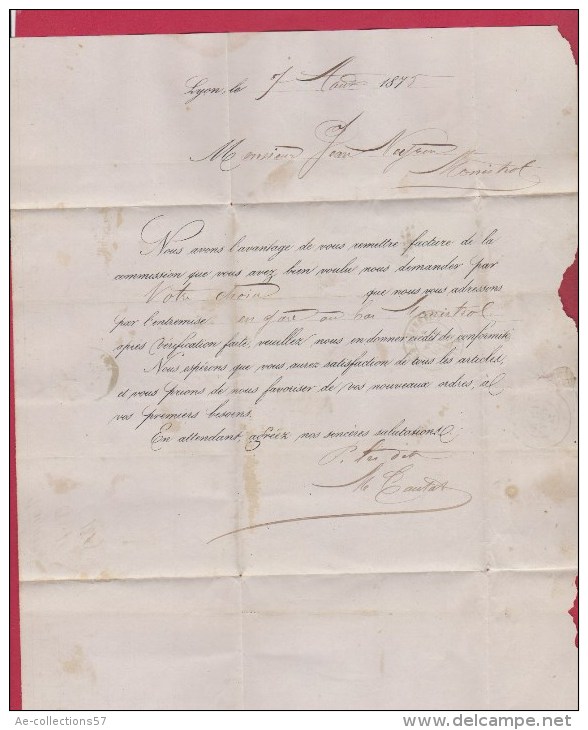 Lyon, le 7 Août 1875
Monsieur Jean
Monistrol
Nous avons l'avantage de vous remettre facture de la
commission que vous avez bien voulu nous demander par
Votre que nous vous adressons
par l'entremise en gare Monistrol
après Vérification faite, veuillez nous en donner crédit de conformité
Nous espérons que vous aurez satisfaction de tous les articles,
et vous prions de nous favoriser de vos nouveaux ordres, à
vos premiers besoins.
En attendant, agréez nos sincères salutations.
Ae-collections57
delcampe.net